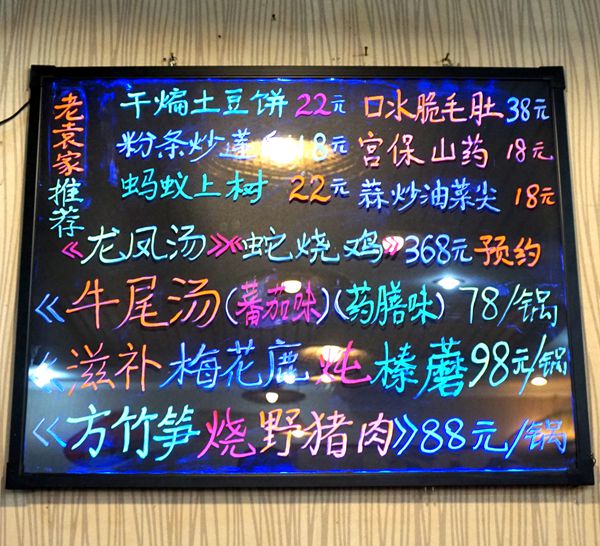 老袁家推荐
干煸土豆饼 22元 口水脆毛肚 38元
粉条炒蓬 18元 宫保山药 18元
蚂蚁上树 22元 蒜炒油菜尖 18元
《龙凤汤》《蛇烧鸡》368元 预约
《牛尾汤(蕃茄味)(药膳味) 78/锅
《滋补梅花鹿炖榛蘑 98元/锅
《方竹笋烧野猪肉》88元/锅